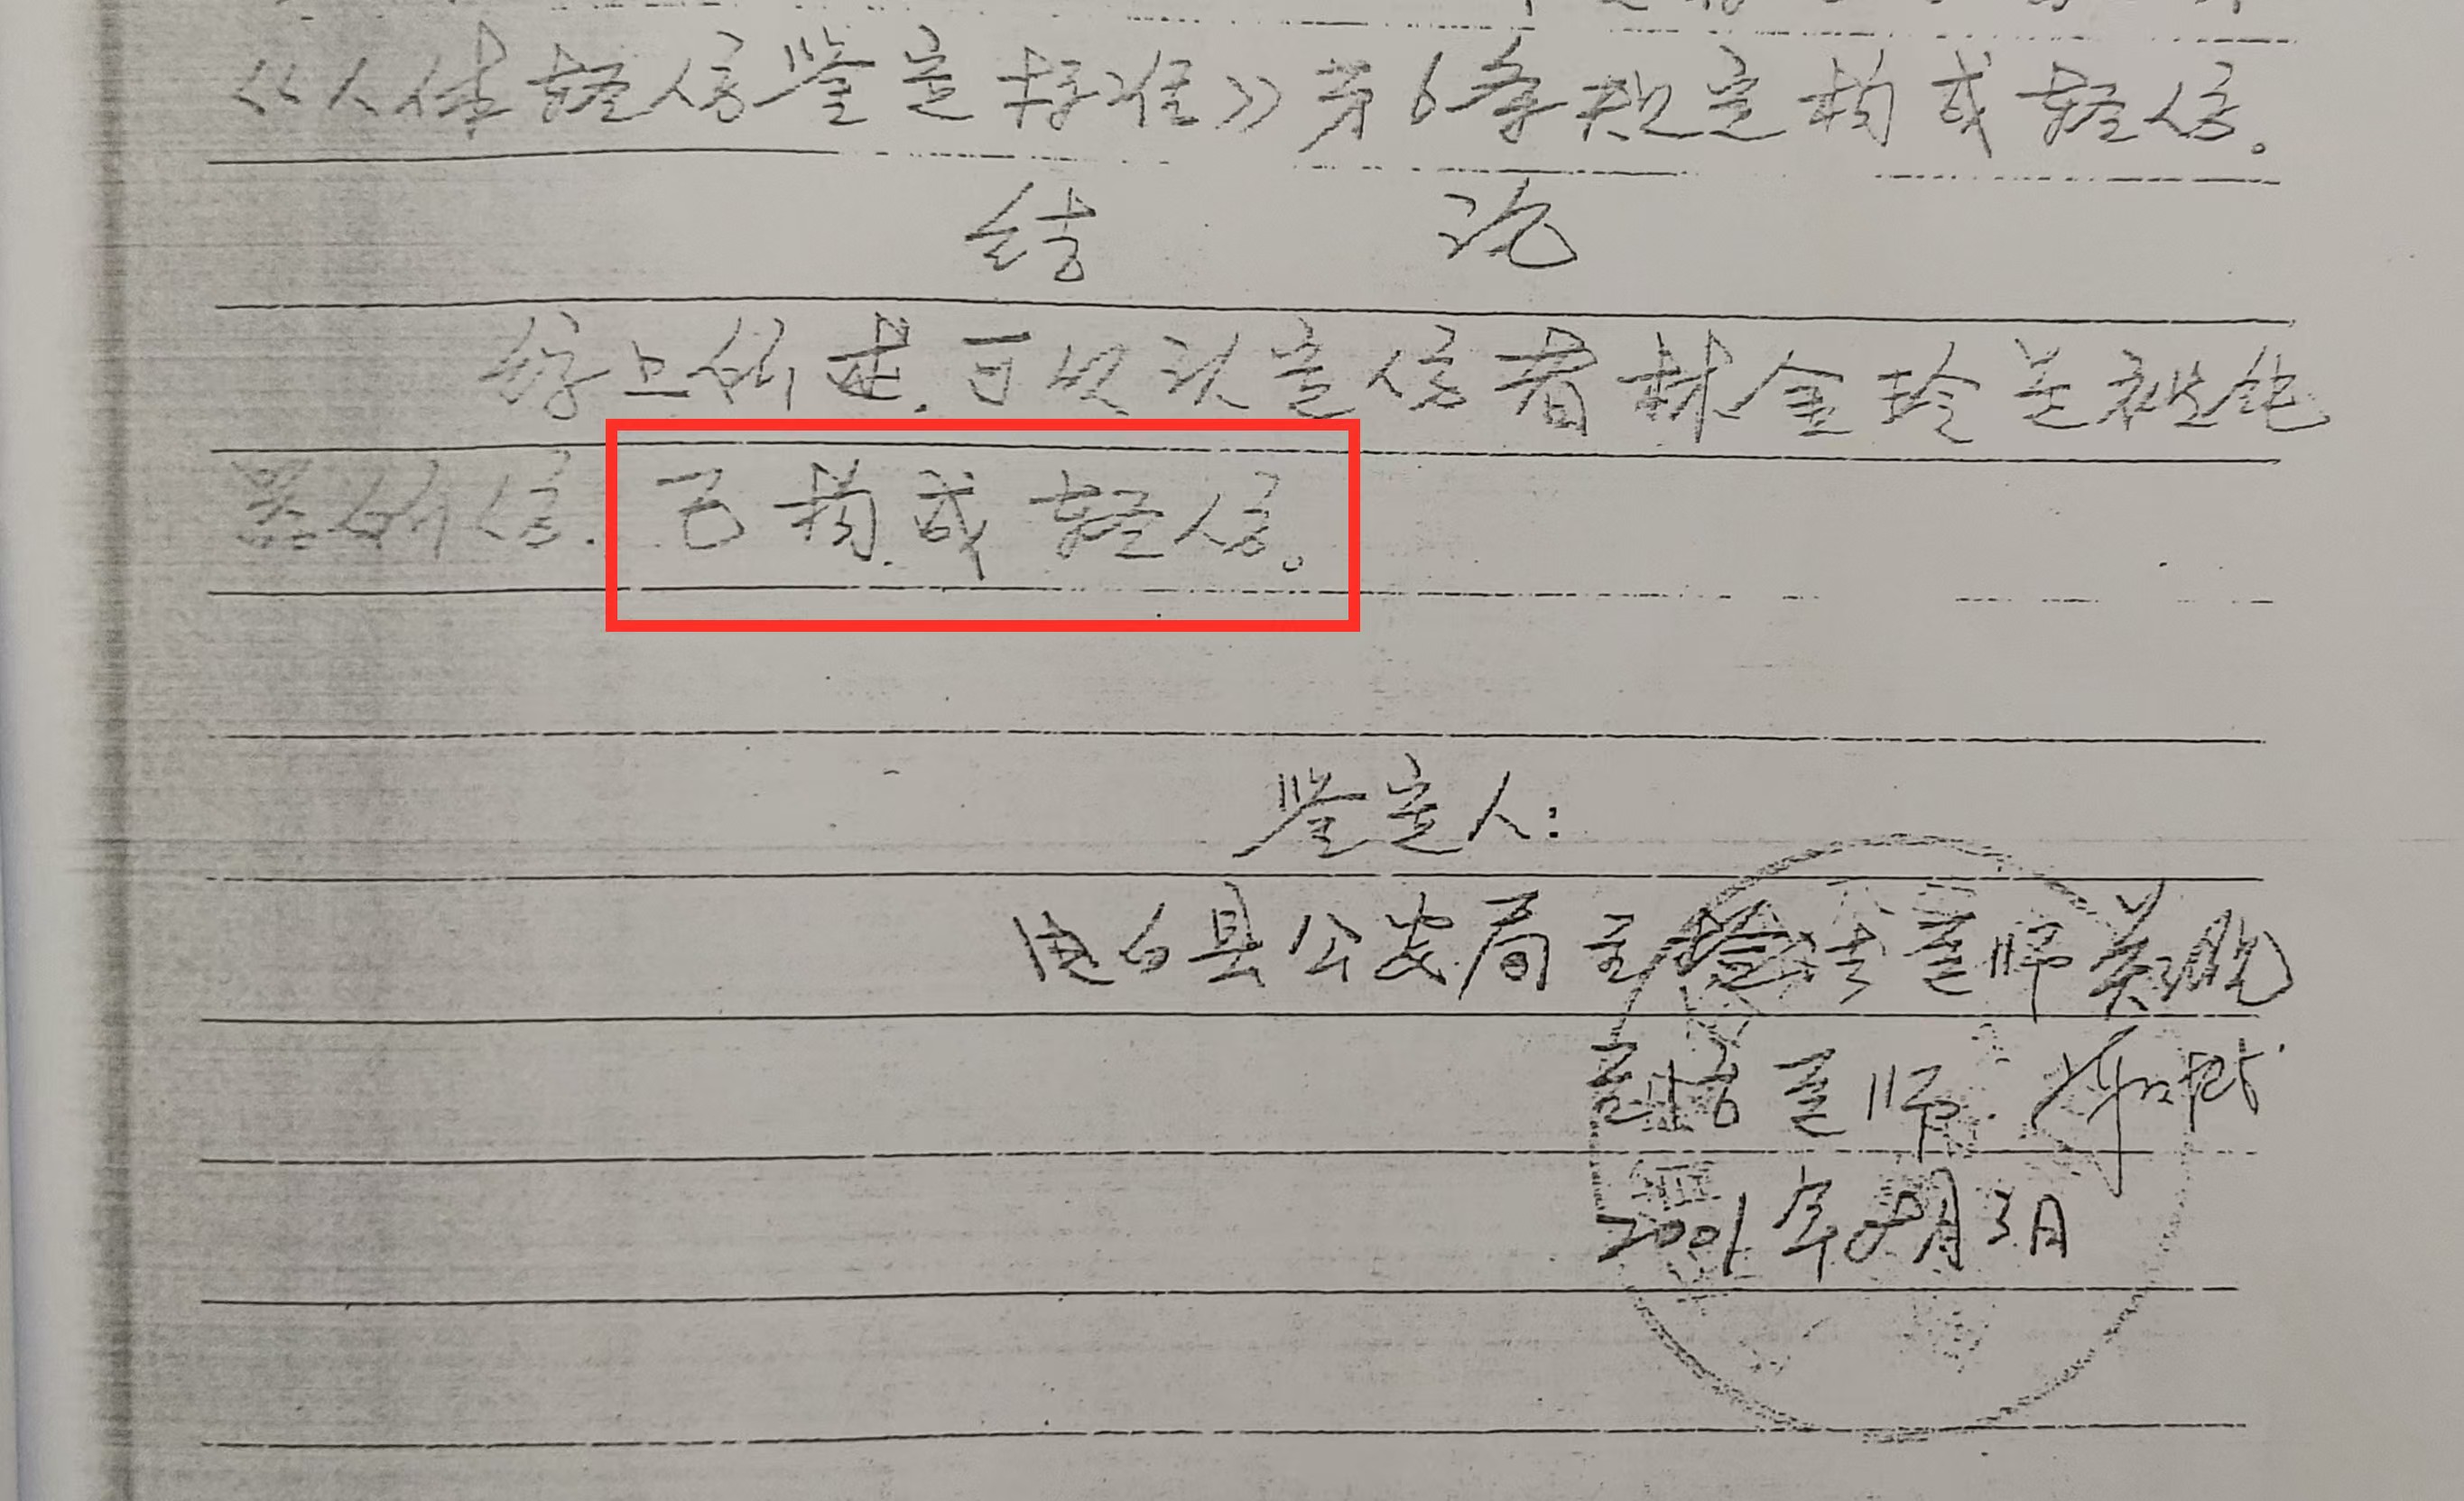 《人体轻伤鉴定标准》第6条规定构成轻伤。
结 论
综上所述.可以认定伤者林金玲是被钝
器所伤.已构成轻伤。
鉴定人:
电白县公安局主检法医师
法医师
2001年08月3日